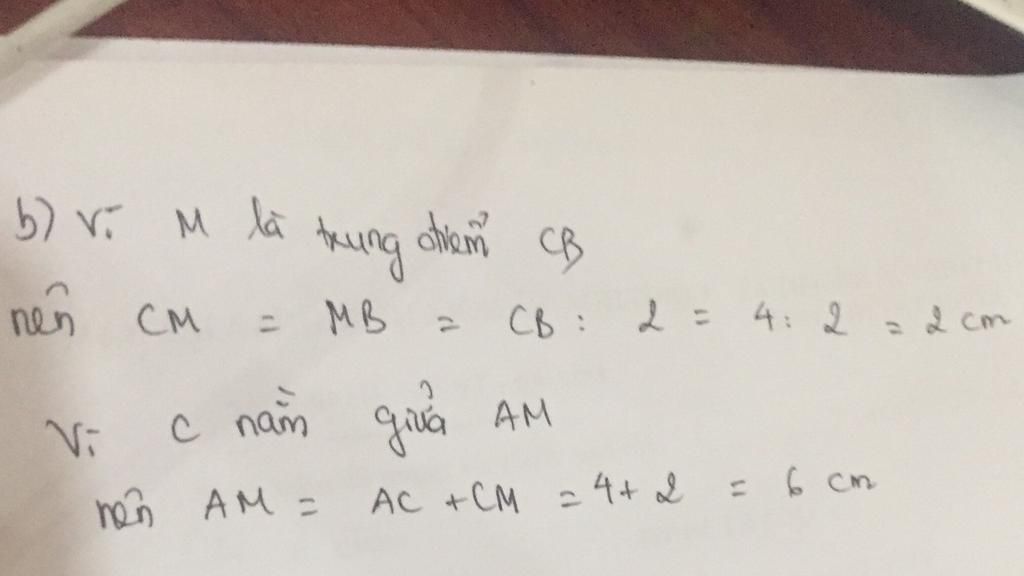 b) Vì M là trung điểm CB
nên CM = MB = CB : 2 = 4 : 2 = 2 cm
Vì C nằm giữa AM
nên AM = AC + CM = 4 + 2 = 6 cm